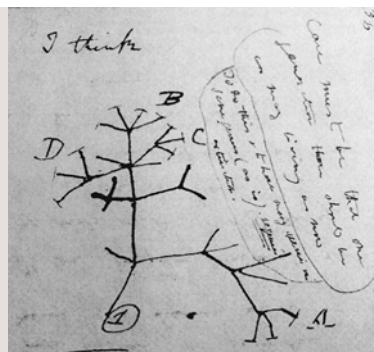 I think
B
C
D
A
1
Case must be that one
generation then should be
as many living as now
To do this & to have many species in
same genus (as is) requires
extinction.
36